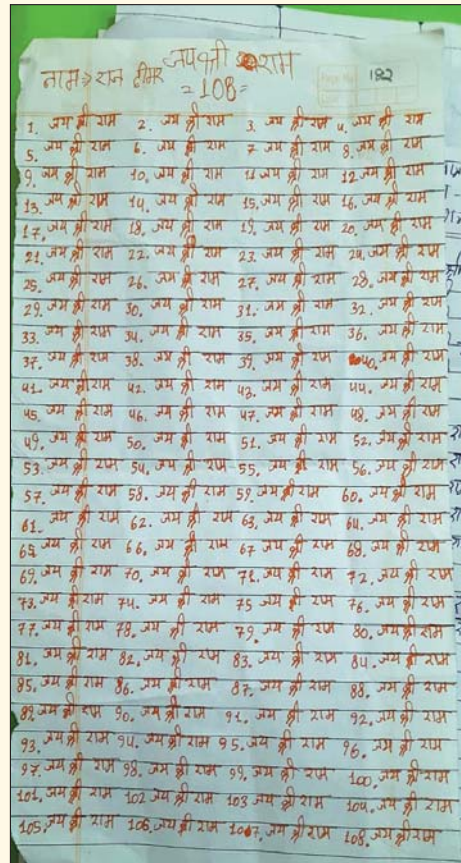 जय श्री राम
नाम → राज
Page No. 182
=108=
1. जय श्री राम 2. जय श्री राम 3. जय श्री राम 4. जय श्री राम
5. जय श्री राम 6. जय श्री राम 7 जय श्री राम 8. जय श्री राम
9. जय श्री राम 10. जय श्री राम 11 जय श्री राम 12. जय श्री राम
13. जय श्री राम 14. जय श्री राम 15. जय श्री राम 16. जय श्री राम
17. जय श्री राम 18. जय श्री राम 19. जय श्री राम 20. जय श्री राम
21. जय श्री राम 22. जय श्री राम 23 जय श्री राम 24. जय श्री राम
25. जय श्री राम 26. जय श्री राम 27. जय श्री राम 28. जय श्री राम
29. जय श्री राम 30. जय श्री राम 31. जय श्री राम 32. जय श्री राम
33. जय श्री राम 34. जय श्री राम 35. जय श्री राम 36. जय श्री राम
37. जय श्री राम 38. जय श्री राम 39. जय श्री राम 40. जय श्री राम
41. जय श्री राम 42. जय श्री राम 43. जय श्री राम 44. जय श्री राम
45. जय श्री राम 46. जय श्री राम 47. जय श्री राम 48. जय श्री राम
49. जय श्री राम 50. जय श्री राम 51. जय श्री राम 52. जय श्री राम
53. जय श्री राम 54. जय श्री राम 55. जय श्री राम 56. जय श्री राम
57. जय श्री राम 58. जय श्री राम 59. जय श्री राम 60. जय श्री राम
61. जय श्री राम 62. जय श्री राम 63. जय श्री राम 64. जय श्री राम
65 जय श्री राम 66. जय श्री राम 67 जय श्री राम 68. जय श्री राम
69. जय श्री राम 70. जय श्री राम 71. जय श्री राम 72. जय श्री राम
73. जय श्री राम 74. जय श्री राम 75 जय श्री राम 76. जय श्री राम
77. जय श्री राम 78. जय श्री राम 79. जय श्री राम 80. जय श्री राम
81. जय श्री राम 82. जय श्री राम 83. जय श्री राम 84. जय श्री राम
85. जय श्री राम 86. जय श्री राम 87. जय श्री राम 88. जय श्री राम
89. जय श्री राम 90. जय श्री राम 91. जय श्री राम 92. जय श्री राम
93. जय श्री राम 94. जय श्री राम 95. जय श्री राम 96. जय श्री राम
97. जय श्री राम 98. जय श्री राम 99. जय श्री राम 100. जय श्री राम
101. जय श्री राम 102 जय श्री राम 103 जय श्री राम 104. जय श्री राम
105. जय श्री राम 106. जय श्री राम 107. जय श्री राम 108. जय श्री राम